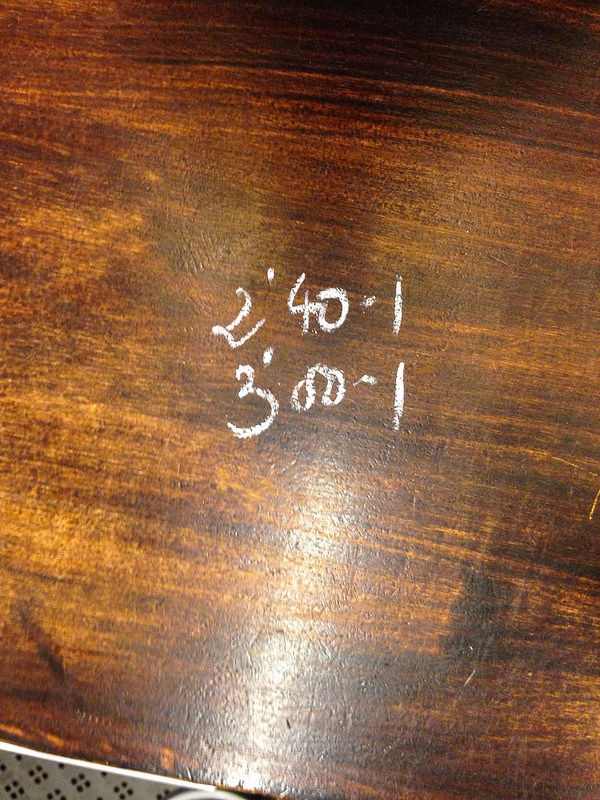 2'40-1
3'00-1